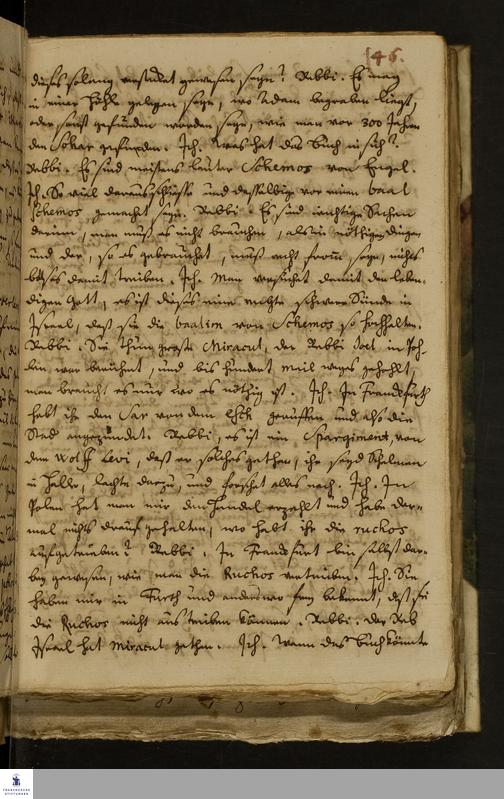 146.
dieses so lang versteckt gewesen seyn? Rabbi. Es mag
in einer Höhle gelegen seyn, wo Adam begraben liegt,
oder sonst gefunden worden seyn, wie man vor 300 Jahren
den Sohar gefunden. Ich. Was hat das Buch in sich?
Rabbi. Es sind meistens lauter Schemos von Engel.
Ich. So viel daraus und dasselbige vor einen baal
schemos gemacht seyn. Rabbi. Es sind wichtige Sachen
darinn, man muß es nicht brauchen, als in nöthigen dingen
und der, so es gebrauchet, muß recht from seyn, nichts
böses damit treiben. Ich. Man versucht damit den leben-
digen Gott, es ist dieses eine rechte schwere Sünde in
Israel, daß sie die baalim von Schemos so hochhalten.
Rabbi. Sie thun große Miracul, der Rabbi Joel in Poh-
len war berühmt, und bis hundert meil weges gehohlt,
man braucht es nur wo es nöthig ist. Ich. In Franckfurth
habt ihr den Sar von dem geruffen und als die
Stad angezündet. Rabbi, es ist ein Spargiment, von
dem Wolff Levi, daß er solches gethan, ihr seyd Schelmen
in Halle, lachte darzu, und forschet alles nach. Ich. In
Polen hat man mir den Handel erzehlt und habe dar-
mal nichts drauf gehalten, wo habt ihr die ruchos
ausgetrieben? Rabbi. In Franckfurt bin selbst dar-
bey gewesen, wie man die Ruchos vertrieben. Ich. Sie
haben mir in Fürth und anderswo frey bekennt, daß sie
die Ruchos nicht austreiben können. Rabbi. der Rab
Israel hat Miracul gethan. Ich. Wann das Buch könnte
FRANCKESCHE
STIFTUNGEN